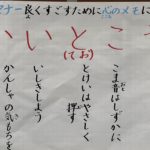 マナー良くすごすために心のメモに
かいとこう
(てお)
こま音はしずかに
とけいはやさしく押す
いしきしよう
かんしゃの気もちを